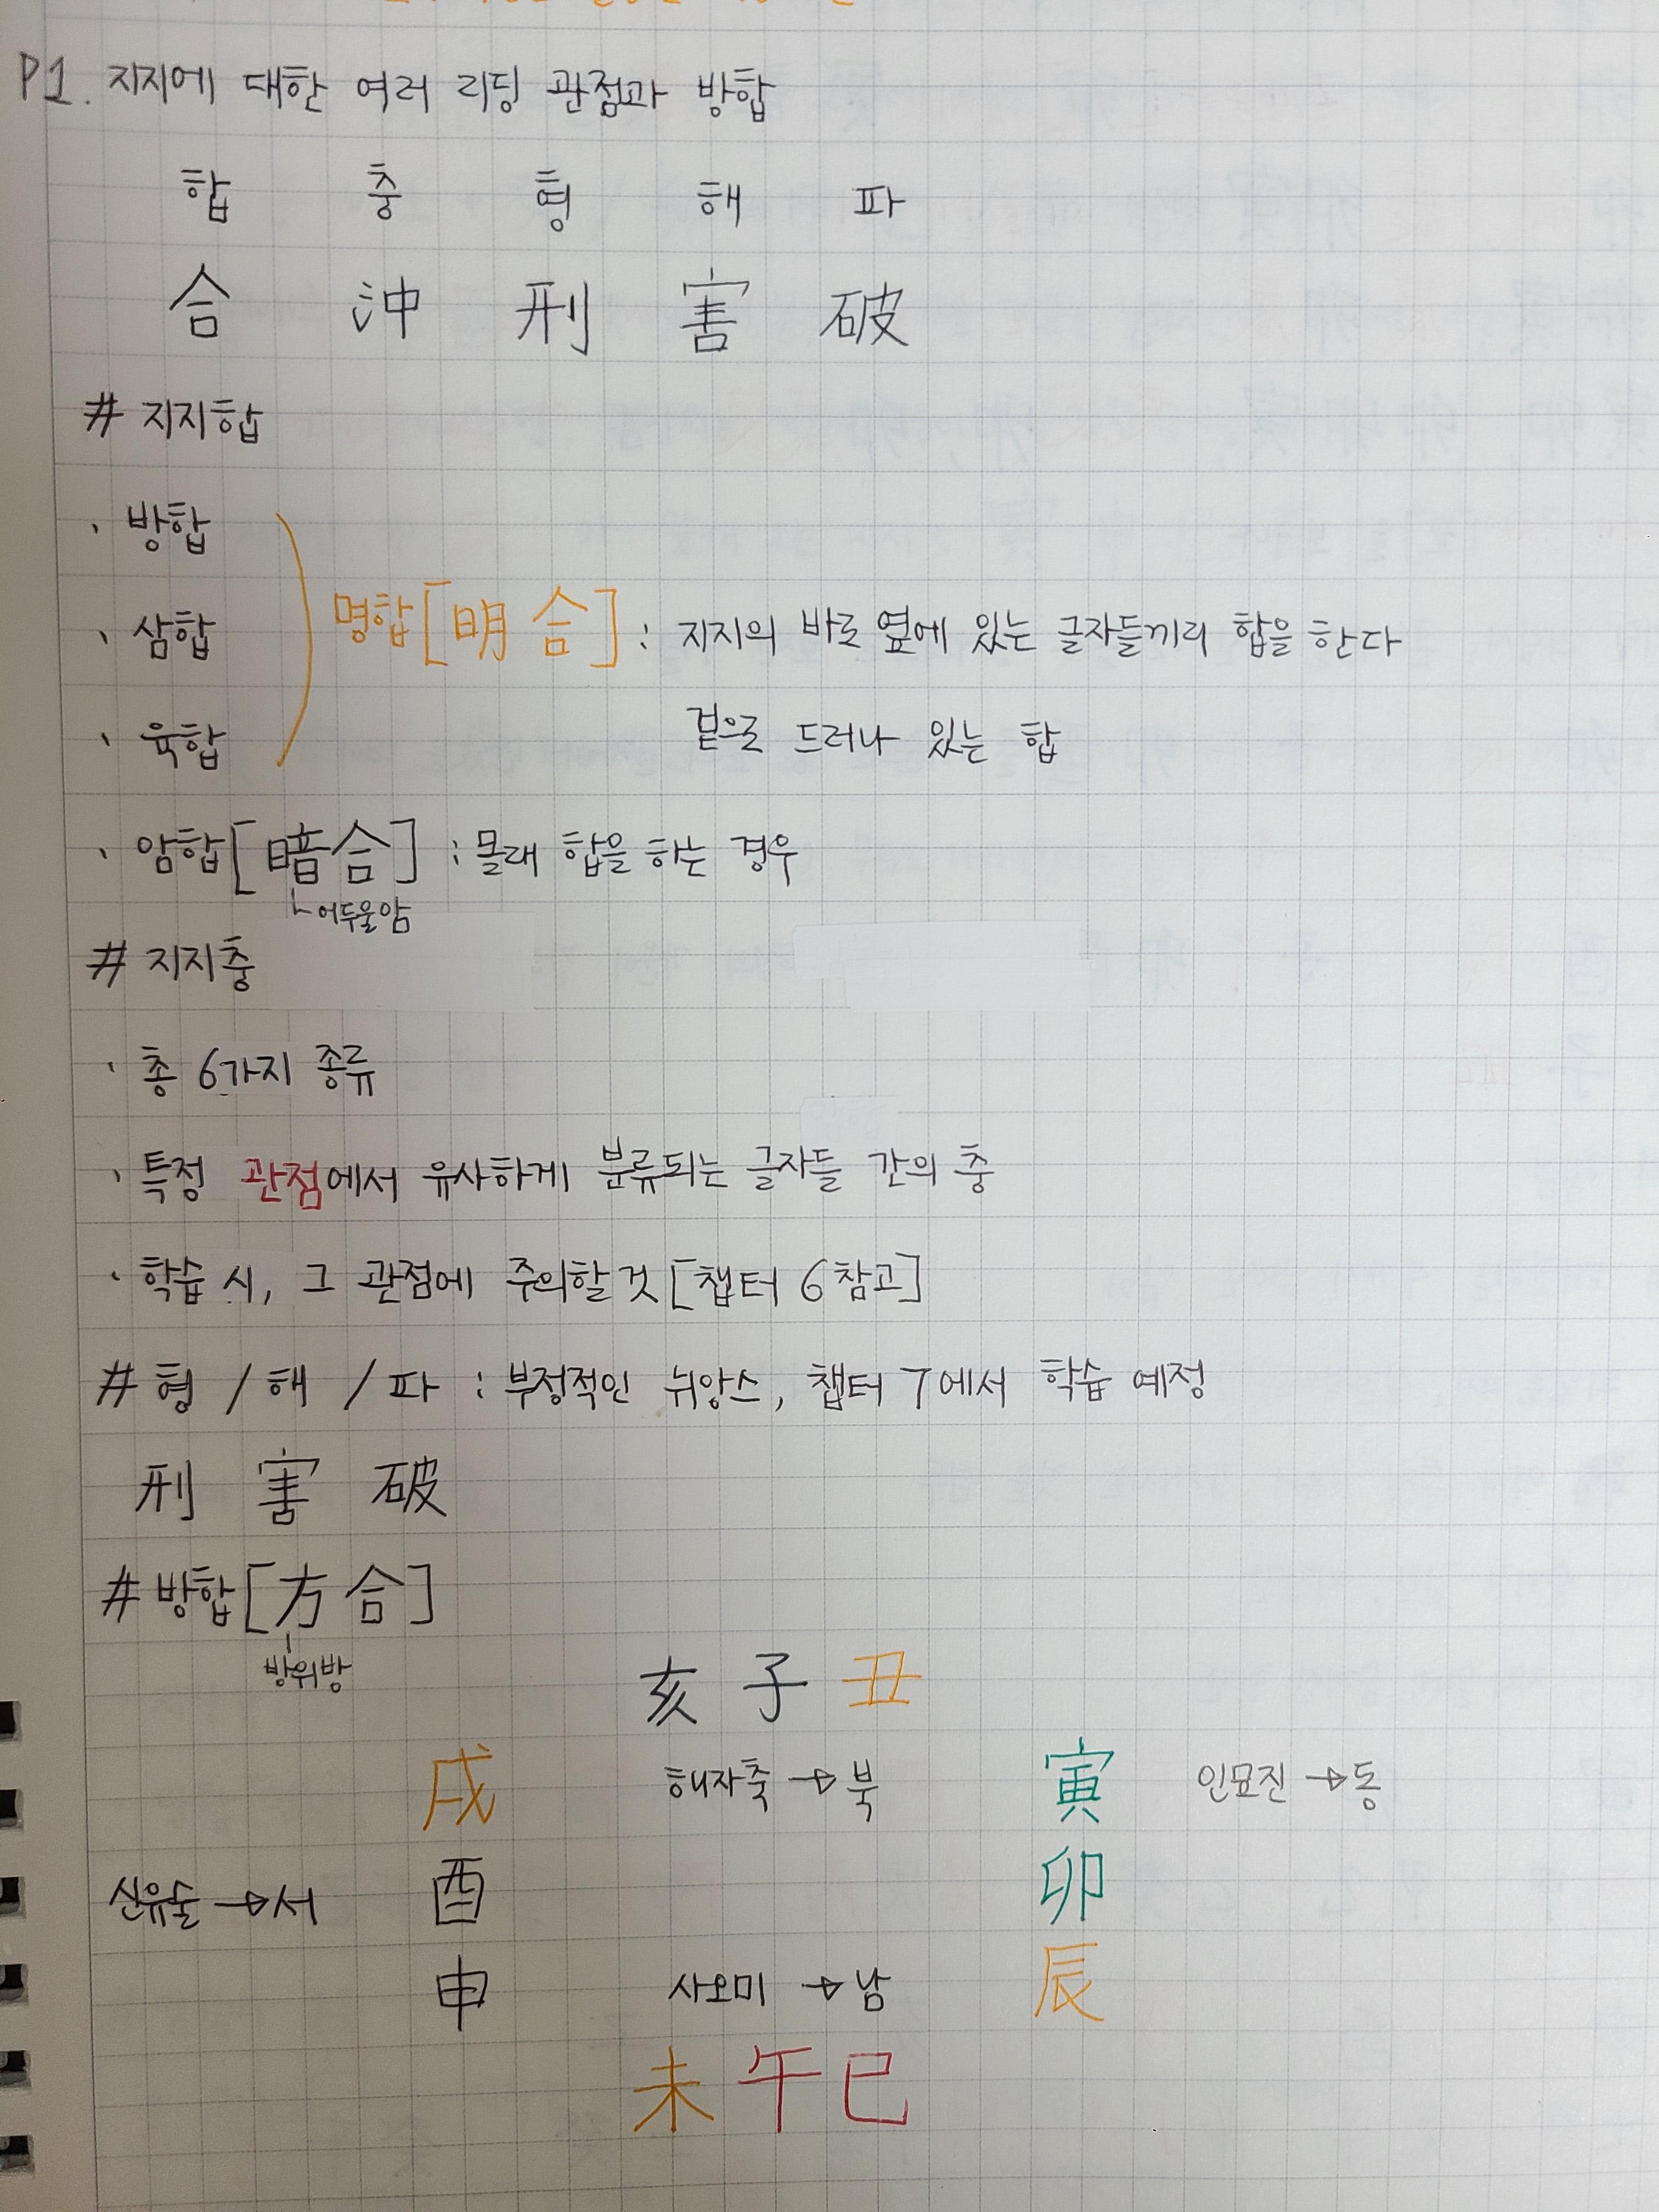 P1. 지지에 대한 여러 리딩 관점과 방합
합 충 형 해 파
合 沖 刑 害 破
# 지지합
· 방합
· 삼합
명합[明合] : 지지의 바로 옆에 있는 글자들끼리 합을 한다
· 육합
겉으로 드러나 있는 합
· 암합[暗合] : 몰래 합을 하는 경우
어두울암
# 지지충
· 총 6가지 종류
· 특정 관점에서 유사하게 분류되는 글자들 간의 충
· 학습 시, 그 관점에 주의할 것 [챕터 6 참고]
# 형 / 해 / 파 : 부정적인 뉘앙스, 챕터 7에서 학습 예정
刑 害 破
# 방합[方合]
방위방
亥 子 丑
戌 해자축 → 북 寅 인묘진 → 동
신유술 → 서 酉 卯
申 사오미 → 남 辰
未 午 巳